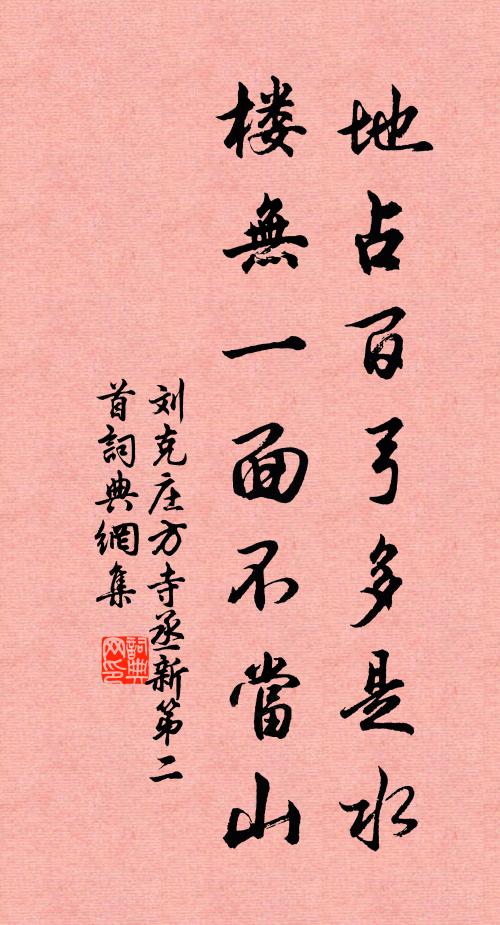 地占百弓多是水
楼無一面不當山
刘克庄方寺丞新第二
首詞典網集
詞典网印